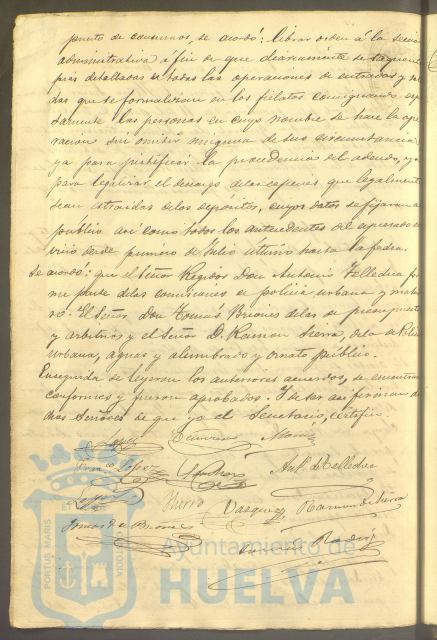 puesto de consumos, se acordó: librar orden á la
administrativa á fin de que diariamente se
detalladas de todas las operaciones de entradas y
das que se formalizan en los fielatos consignando
las personas en cuyo nombre se hace la ope
racion sin omitir ninguna de sus circunstancias
ya para justificar la procedencia del adeudo, y
para legalizar el descargo de las especies que legalmente
sean extraidas de los depositos, cuyos datos se fijaran al
publico asi como todos los antecedentes del
desde primero de Julio ultimo hasta la fecha.
Se acordó: que el Señor Regidor Don Antonio Telledea for
me parte de las comisiones de policia urbana y
El Señor Don Tomás Briones de las de presupuestos
y arbitrios y el Señor D. Ramon Sierra, de la de Policia
urbana, aguas y alumbrado y ornato público.
Enseguida se leyeron los anteriores acuerdos, se encontraron
conformes y fueron aprobados. Y de ser asi firman
dhos Señores de que yo el Secretario, certifico.
Lopez
Lopez
Ant. de Telledea
Vazquez
Ramon de Sierra
Tomas de Briones
PORTUS MARIS ET TERRAE CUSTODIA
Ayuntamiento de
HUELVA